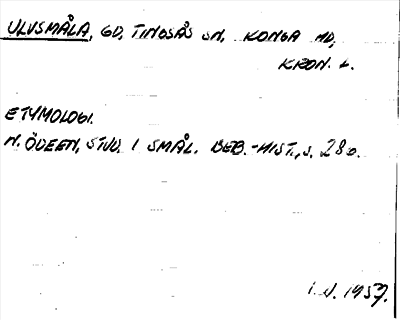 ULVSMÅLA, GD, TINGSÅS SN, KONGA HD,
KRON. L.
ETYMOLOGI.
N. ÖDEEN, STUD. I SMÅL. BEB.-HIST., S. 280.
1957.